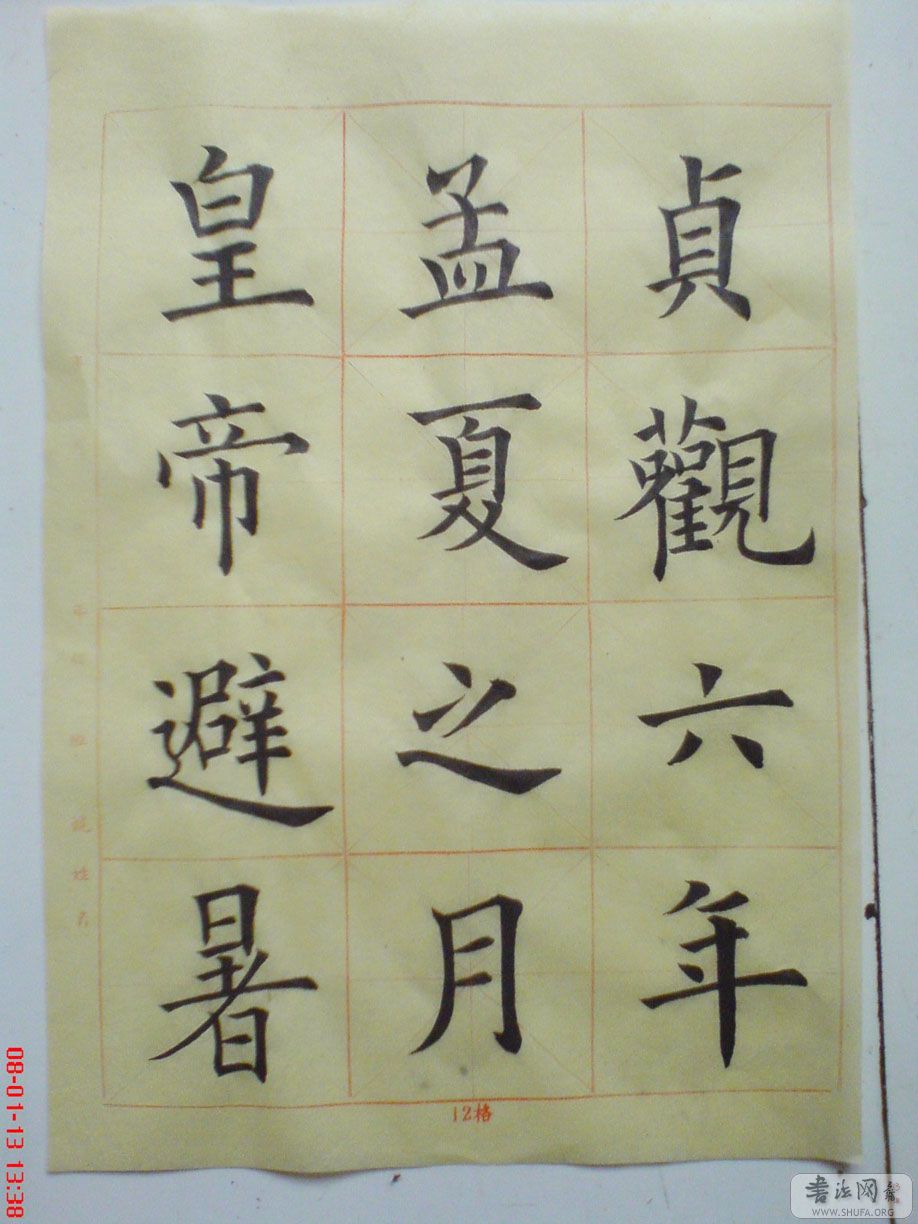 貞觀六年
孟夏之月
皇帝避暑
12格
08-01-13 13:38
书法网
WWW.SHUFA.ORG